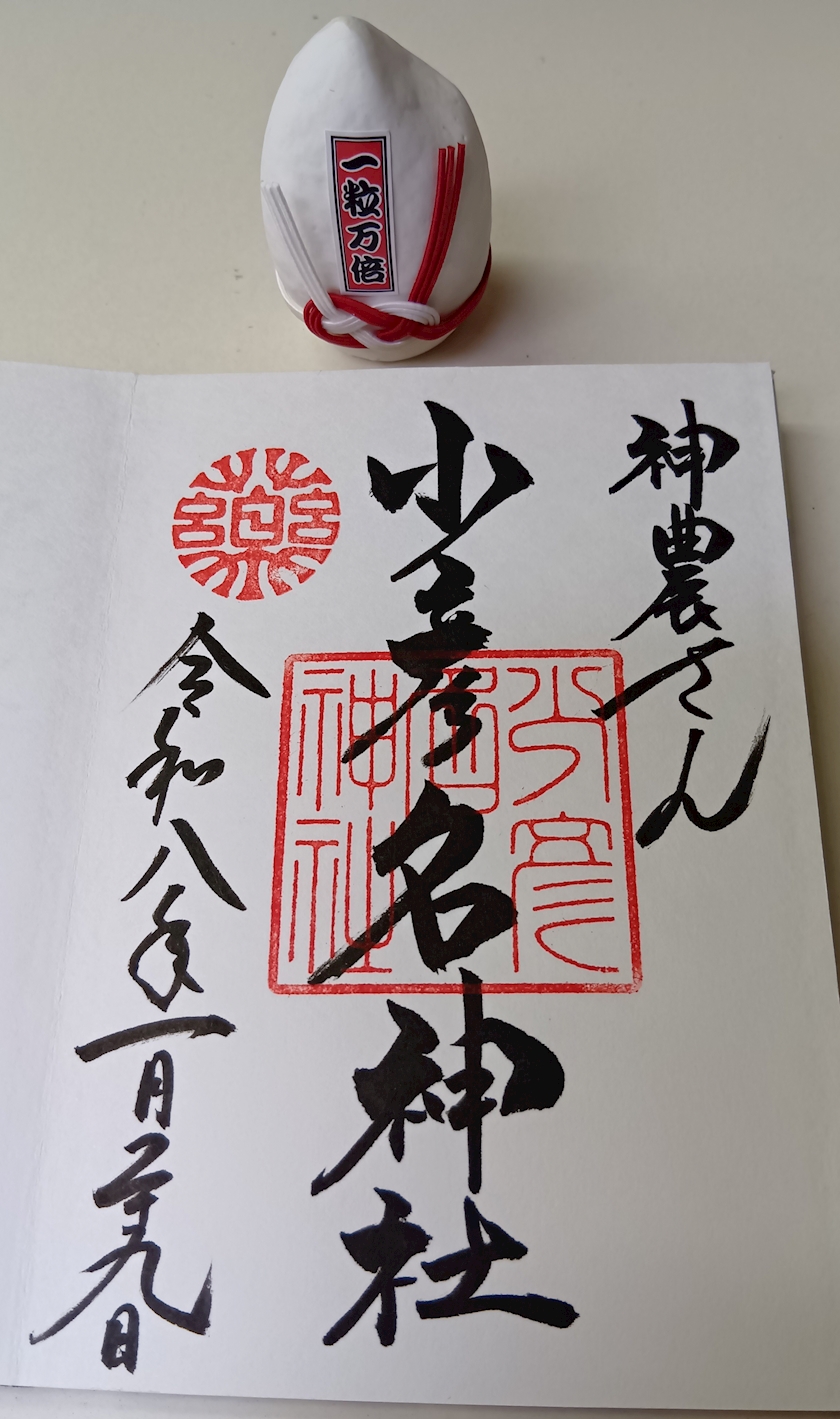 一粒万倍
神農さん
少彦名神社
少彦名神社
藥
令和八年一月二十九日